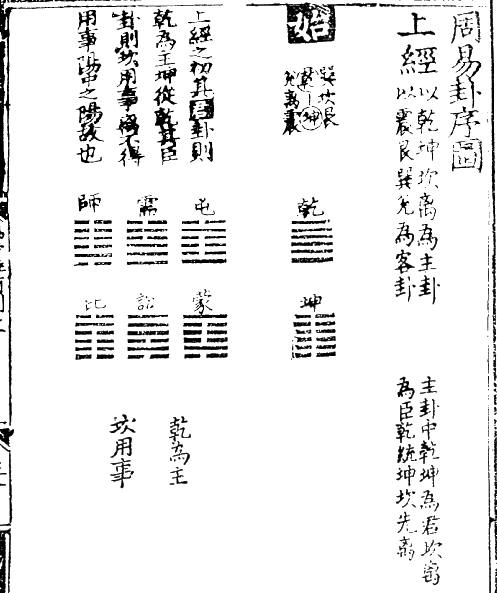 周易卦序圖
上經以乾坤坎离為主卦
以震艮巽兌為客卦
主卦中乾坤為君坎离
為臣乾統坤坎先离
始
巽坎艮
乾坤
兌离震
乾
坤
上經之初其君卦則
乾為主坤從乾其臣
卦則坎用事离不得
用事陽中之陽故也
屯
需
師
蒙
訟
比
乾為主
坎用事